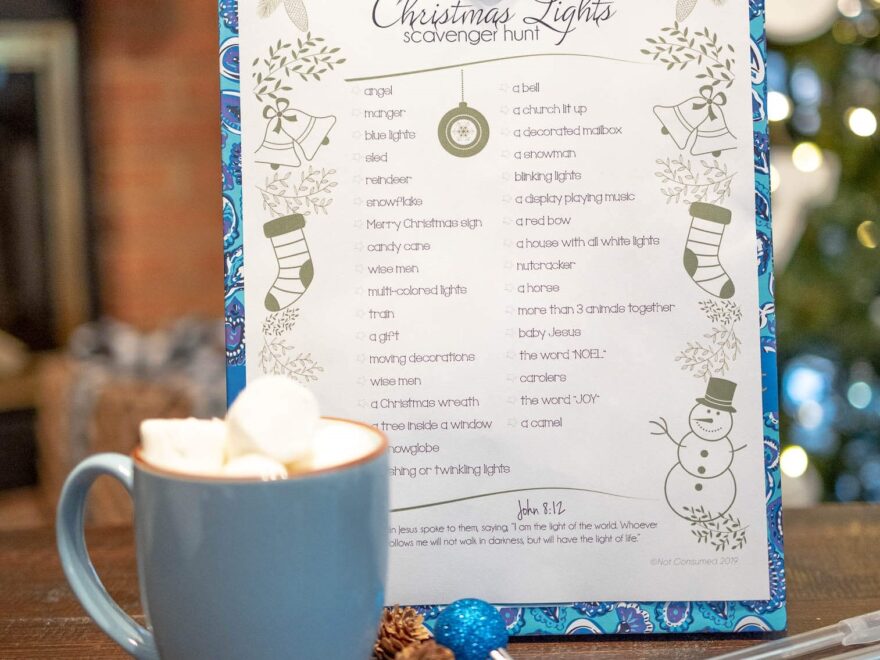 Christmas Lights
scavenger hunt
angel
manger
blue lights
sled
reindeer
snowflake
Merry Christmas sign
candy cane
wise men
multi-colored lights
train
a gift
moving decorations
wise men
a Christmas wreath
a tree inside a window
nowglobe
shing or twinkling lights
a bell
a church lit up
a decorated mailbox
a snowman
blinking lights
a display playing music
a red bow
a house with all white lights
nutcracker
a horse
more than 3 animals together
baby Jesus
the word "NOEL"
carolers
the word "JOY"
a camel
John 8:12
in Jesus spoke to them, saying, "I am the light of the world. Whoever
ollows me will not walk in darkness, but will have the light of life."
©Not Consumed 2019